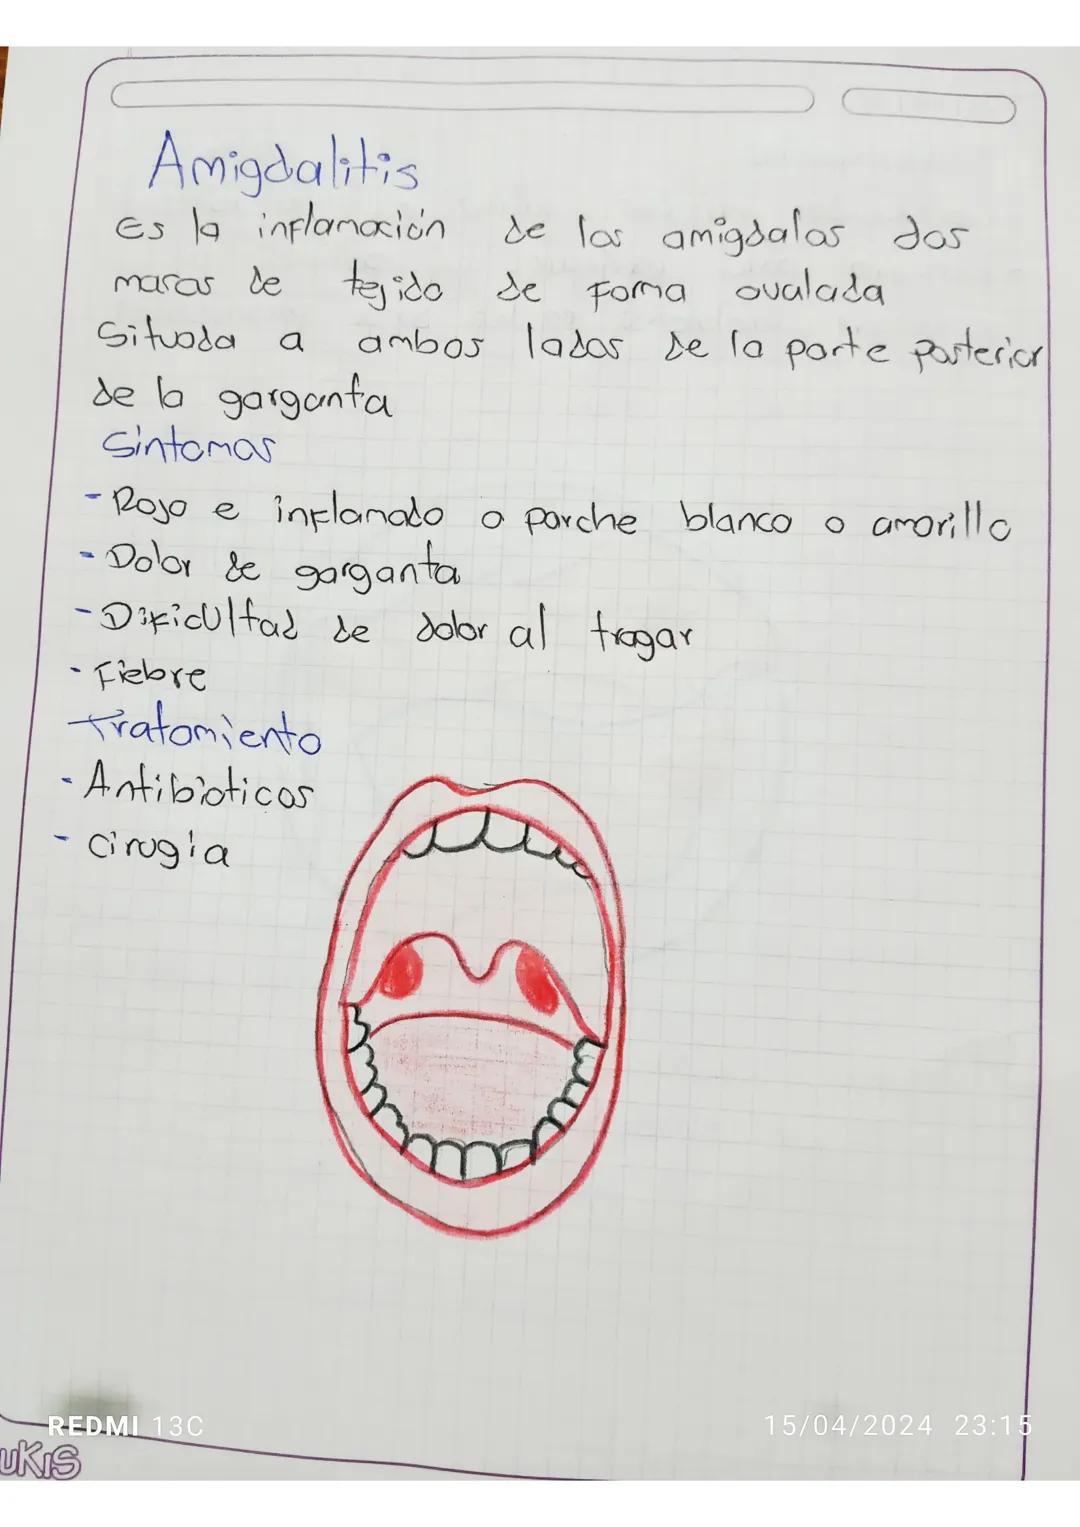 Amigdalitis
Es la inflamación de las amigdalas dos
masas de tejido de forma ovalada
Situada a ambos lados de la parte posterior
de la garganta
Síntomas
- Rojo e inflamado o parche blanco o amarillo
- Dolor de garganta
- Dificultad de dolor al tragar
- Fiebre
Tratamiento
- Antibioticos
- cirugia
REDMI 13C
15/04/2024 23:15
UKIS